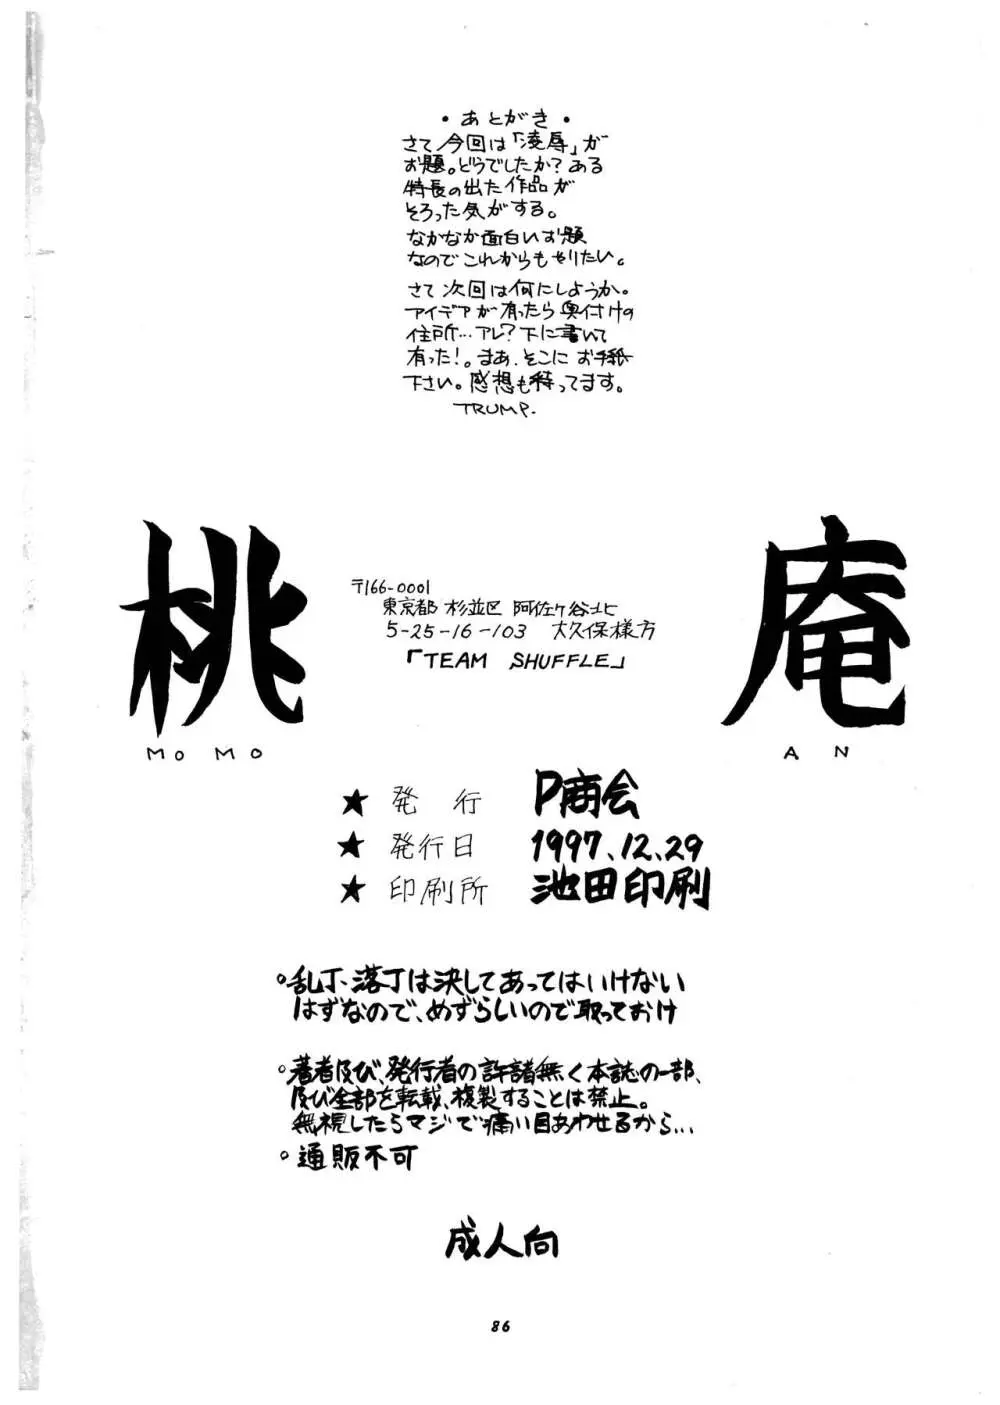 ・あとがき・
さて今回は「凌辱」が
お題。どうでしたか?ある
特長の出た作品が
そろった気がする。
なかなか面白いお題
なのでこれからもやりたい。
さて次回は何にしようか。
アイデアが有ったら奥付けの
住所…アレ?下に書いて
有った!。まあ、そこにお手紙
下さい。感想も待ってます。
TRUMP.
桃 庵
MOMO AN
〒166-0001
東京都 杉並区 阿佐ヶ谷北
5-25-16-103 大久保様方
「TEAM SHUFFLE」
★ 発行 P商会
★ 発行日 1997.12.29
★ 印刷所 池田印刷
。乱丁、落丁は決してあってはいけない
はずなので、めずらしいので取っておけ
。著者及び、発行者の許諾無く本誌の一部、
及び全部を転載、複製することは禁止。
無視したらマジで痛い目あわせるから…
。通販不可
成人向
86